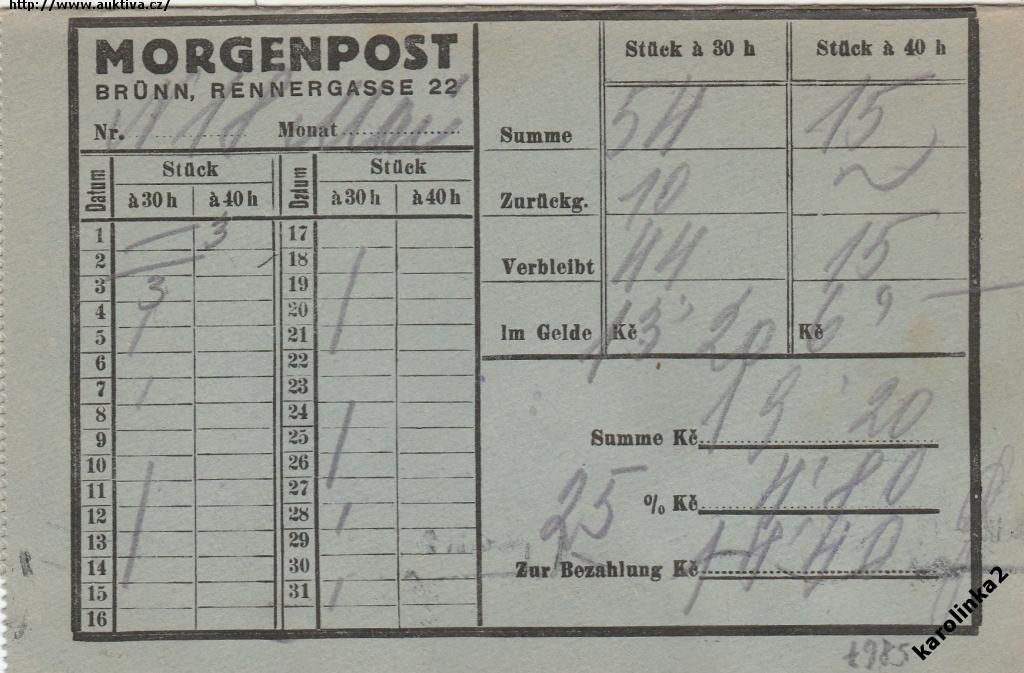 http://www.auktiva.cz/
MORGENPOST
BRÜNN, RENNERGASSE 22
Nr. 18 Monat Mai
Datum Stück Datum Stück
à 30 h à 40 h à 30 h à 40 h
1 3 17
2 18
3 3 19
4 20
5 21
6 22
7 23
8 24
9 25
10 26
11 27
12 28
13 29
14 30
15 31
16
Stück à 30 h Stück à 40 h
Summe 54 15
Zurückg. 10
Verbleibt 44 15
Im Gelde Kč 13 20 Kč 6
Summe Kč 19 20
25 % Kč 4 80
Zur Bezahlung Kč 14 40
karolinka2